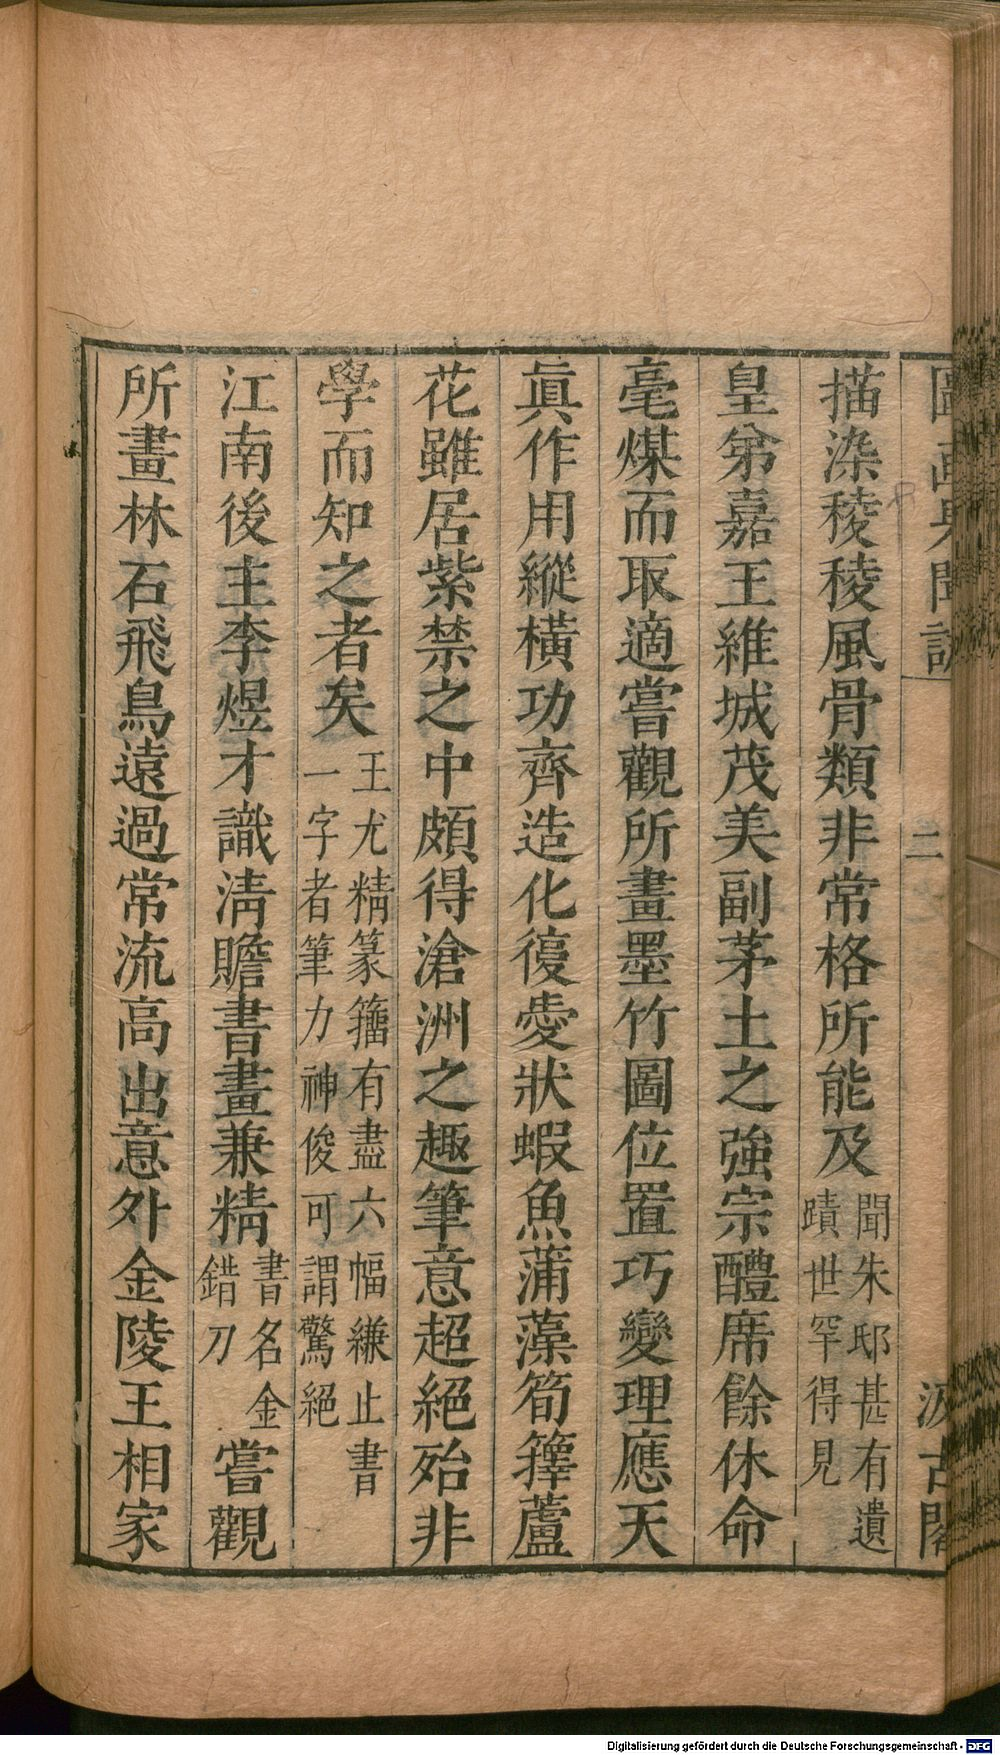 圖畫見聞誌
二
汲古閣
描染稜稜風骨類非常格所能及聞朱邸甚有遺蹟世罕得見
皇弟嘉王維城茂美副茅土之強宗醴席餘休命
毫煤而取適嘗觀所畫墨竹圖位置巧變理應天
眞作用縱橫功齊造化復愛狀蝦魚蒲藻筍籜蘆
花雖居紫禁之中頗得滄洲之趣筆意超絕殆非
學而知之者矣王尤精篆籀有盡六幅縑止書一字者筆力神俊可謂驚絕
江南後主李煜才識淸贍書畫兼精書名金錯刀嘗觀
所畫林石飛鳥遠過常流高出意外金陵王相家
Digitalisierung gefördert durch die Deutsche Forschungsgemeinschaft - DFG